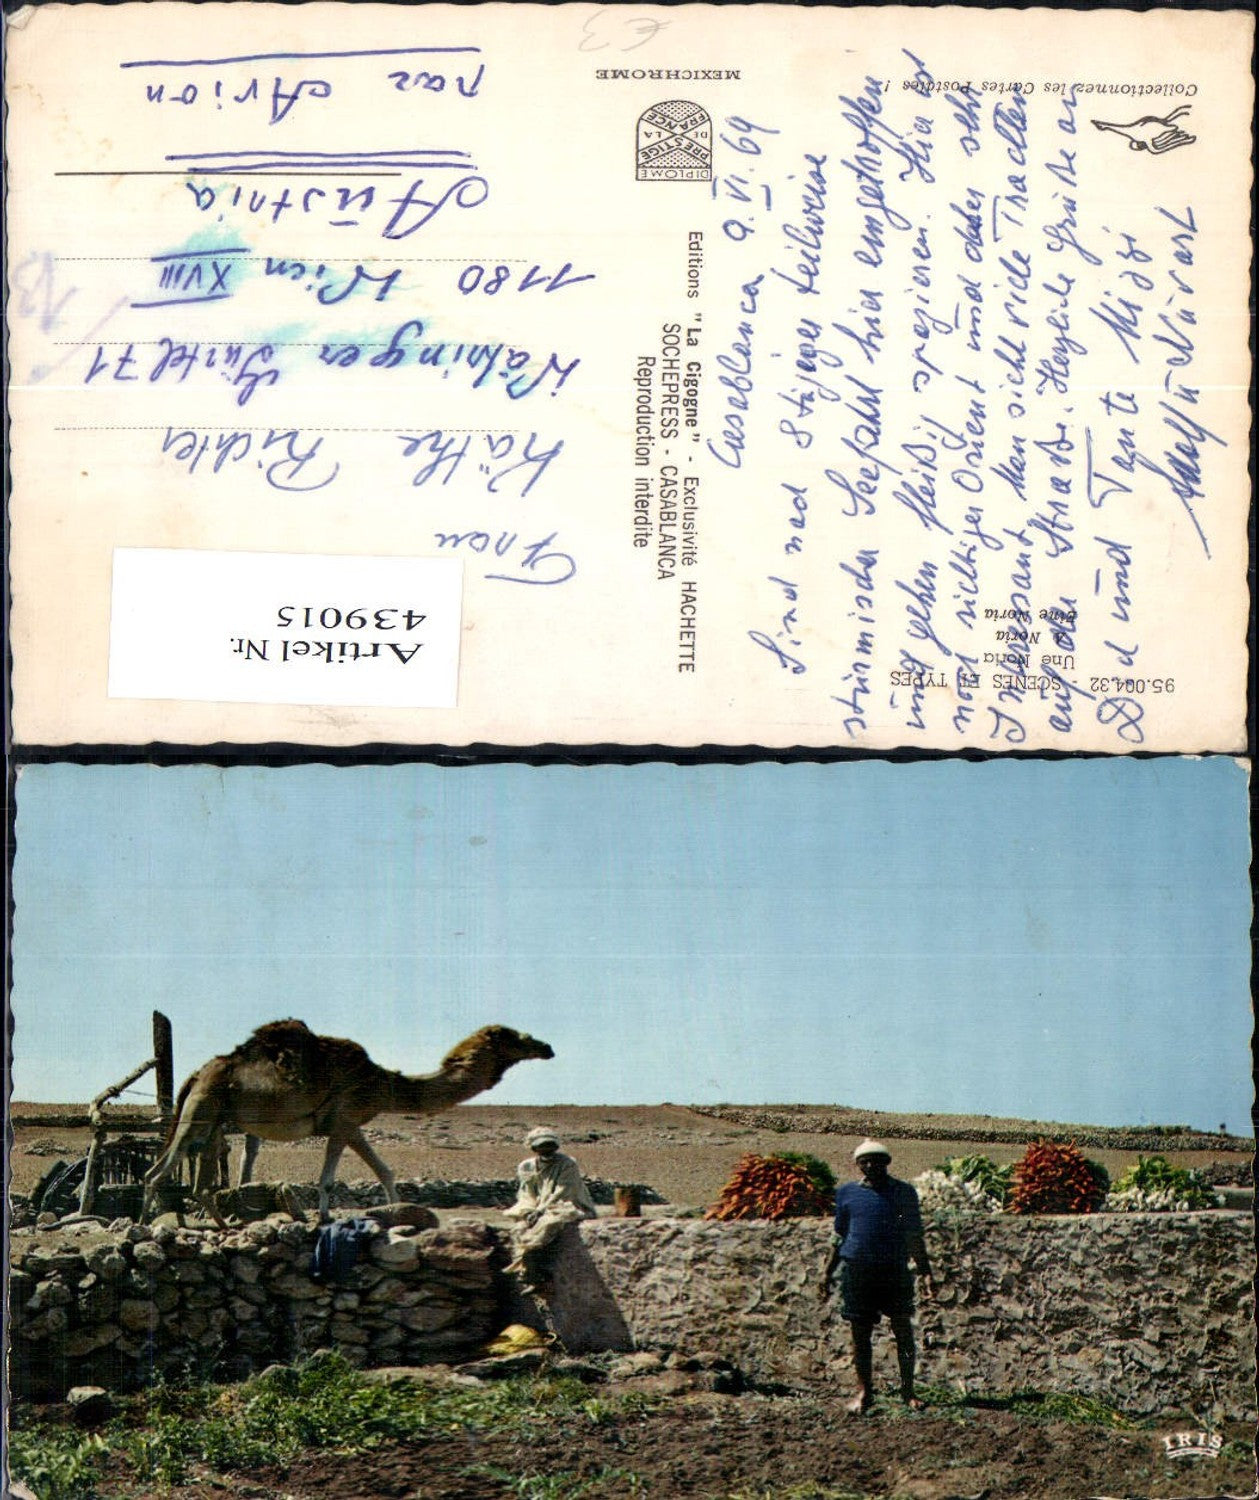 Collectionnez les Cartes Postales !
95.004.32 SCENES ET TYPES
Une Noria
A Noria
Eine Noria
Casablanca 9. VI. 69
Sind nach 8 tägiger teilweise
stürmischer Seefahrt hier eingetroffen
und gehen fleißig spazieren. Hier ist
noch richtiger Orient und daher sehr
Interessant. Man sieht viele Trachten
auf der Straße. Herzliche Grüße an
und Tante Mizzi
MEXICHROME
DIPLOME
PRESTIGE
DE LA
FRANCE
Editions "La Cigogne" - Exclusivité HACHETTE
SOCHEPRESS - CASABLANCA
Reproduction interdite
Artikel Nr.
439015
Frau
Käthe Richter
Währinger Gürtel 71
1180 Wien XVIII
Austria
par Avion
13
€3
IRIS